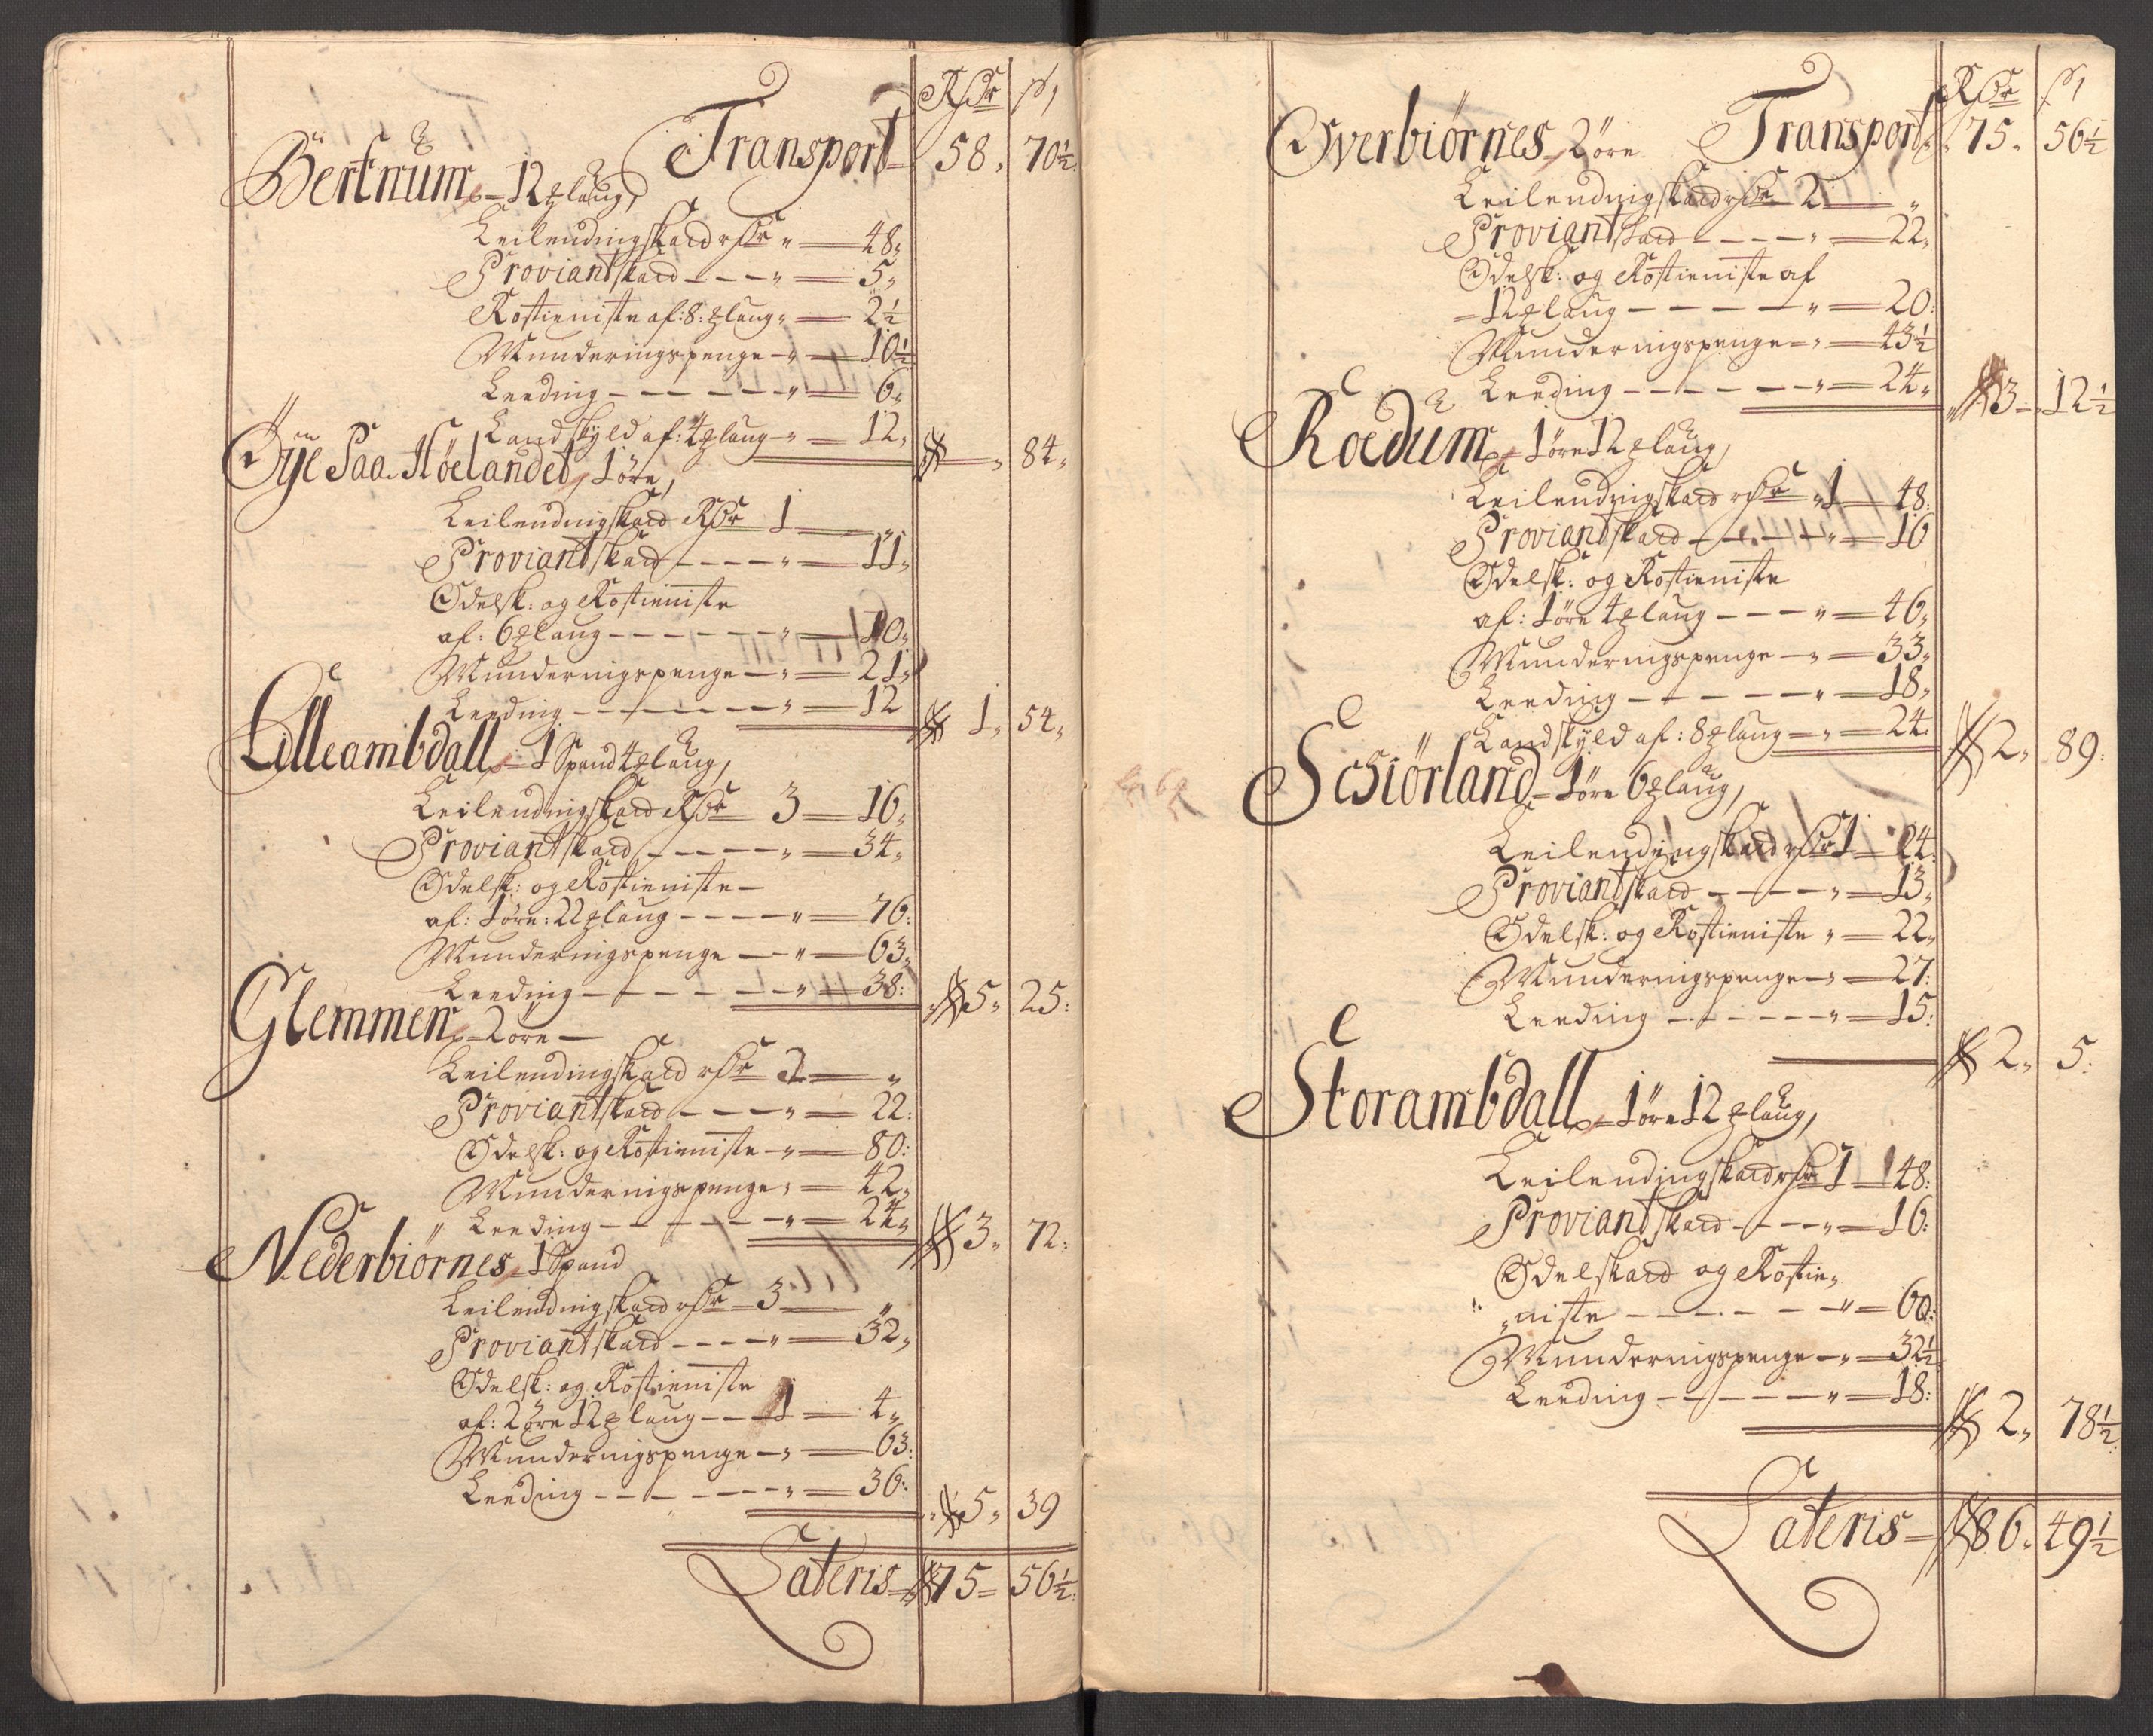 Rdr ß
Transport 58. 70½
Bertnum 12 Ɥlaug,
Leilendingskatd rdr „ 48„
Proviantskatd „ 5„
Rostieniste af: 8: Ɥlaug „ 2½
Munderingspenge „ 10½
Leeding „ 6„
Landskyld af: 4Ɥlaug „ 12„ „ 84„
Øÿe Paa Høelandet, 1 öre,
Leilendingskatd Rdr 1 „
Proviantskatd „ 11„
Odelsk: og Rostieniste
af: 6Ɥlaug „ 10„
Munderingspenge „ 21„
Leeding „ 12 1„ 54„
Lilleambdall 1 Spand 4Ɥlaug,
Leilendingskatd Rdr 3 16„
Proviantskatd „ 34„
Odelsk: og Rostieniste
af: 1öre: 22Ɥlaug „ 76:
Munderingspenge „ 63„
Leeding „ 38: 5„ 25:
Glemmen 2 öre
Leilendingskatd rdr 2 „
Proviantskatd „ 22:
Odelsk: og Rostieniste „ 80:
Munderingspenge „ 42„
Leeding „ 24„ 3„ 72:
Nederbiörnes 1 Spand
Leilendingskatd rdr 3 „
Proviantskatd „ 32„
Odelsk: og Rostieniste
af: 2 öre 12Ɥlaug 1 4„
Munderingspenge „ 63:
Leeding „ 36: 5„ 39
Lateris 75 56½:
Rdr ß
Overbiörnes 2 öre Transport 75. 56½
Leilendingskatd rdr 2 „
Proviantskatd „ 22„
Odelsk: og Rostieniste af
12Ɥlaug „ 20:
Munderingspenge „ 43½
Leeding „ 24„ 3 12½
Roedum 1 öre 12Ɥlaug,
Leilendingskatd rdr 1 48:
Proviandskatd „ 16
Odelsk: og Rostieniste
af: 1öre 4Ɥlaug „ 46„
Munderingspenge „ 33„
Leeding „ 18„
Landskyld af: 8Ɥlaug „ 24: 2„ 89:
Sesiörland 1öre 6Ɥlaug,
Leilendingskatd rdr 1 24:
Proviantskatd „ 13„
Odelsk: og Rostieniste „ 22„
Munderingspenge „ 27:
Leeding „ 15:
2„ 5:
Storambdall 1öre 12Ɥlaug,
Leilendingskatd rdr 1 48:
Proviantskatd „ 16:
Odelskatd og Rostie„
„niste „ 60:
Munderingspenge „ 32½
Leeding „ 18:
2„ 78½:
Lateris 86. 49½